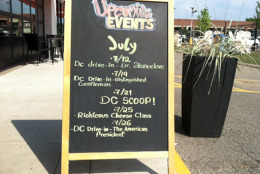 Upcoming
EVENTS
July
-7/12
DC drive-in - Dr. Strangelove
-7/19
DC Drive-in - Distinguished
Gentleman
-7/21
DC SCOOP!
-7/25
- Righteous Cheese Class
-7/26
- DC Drive-in - The American
President